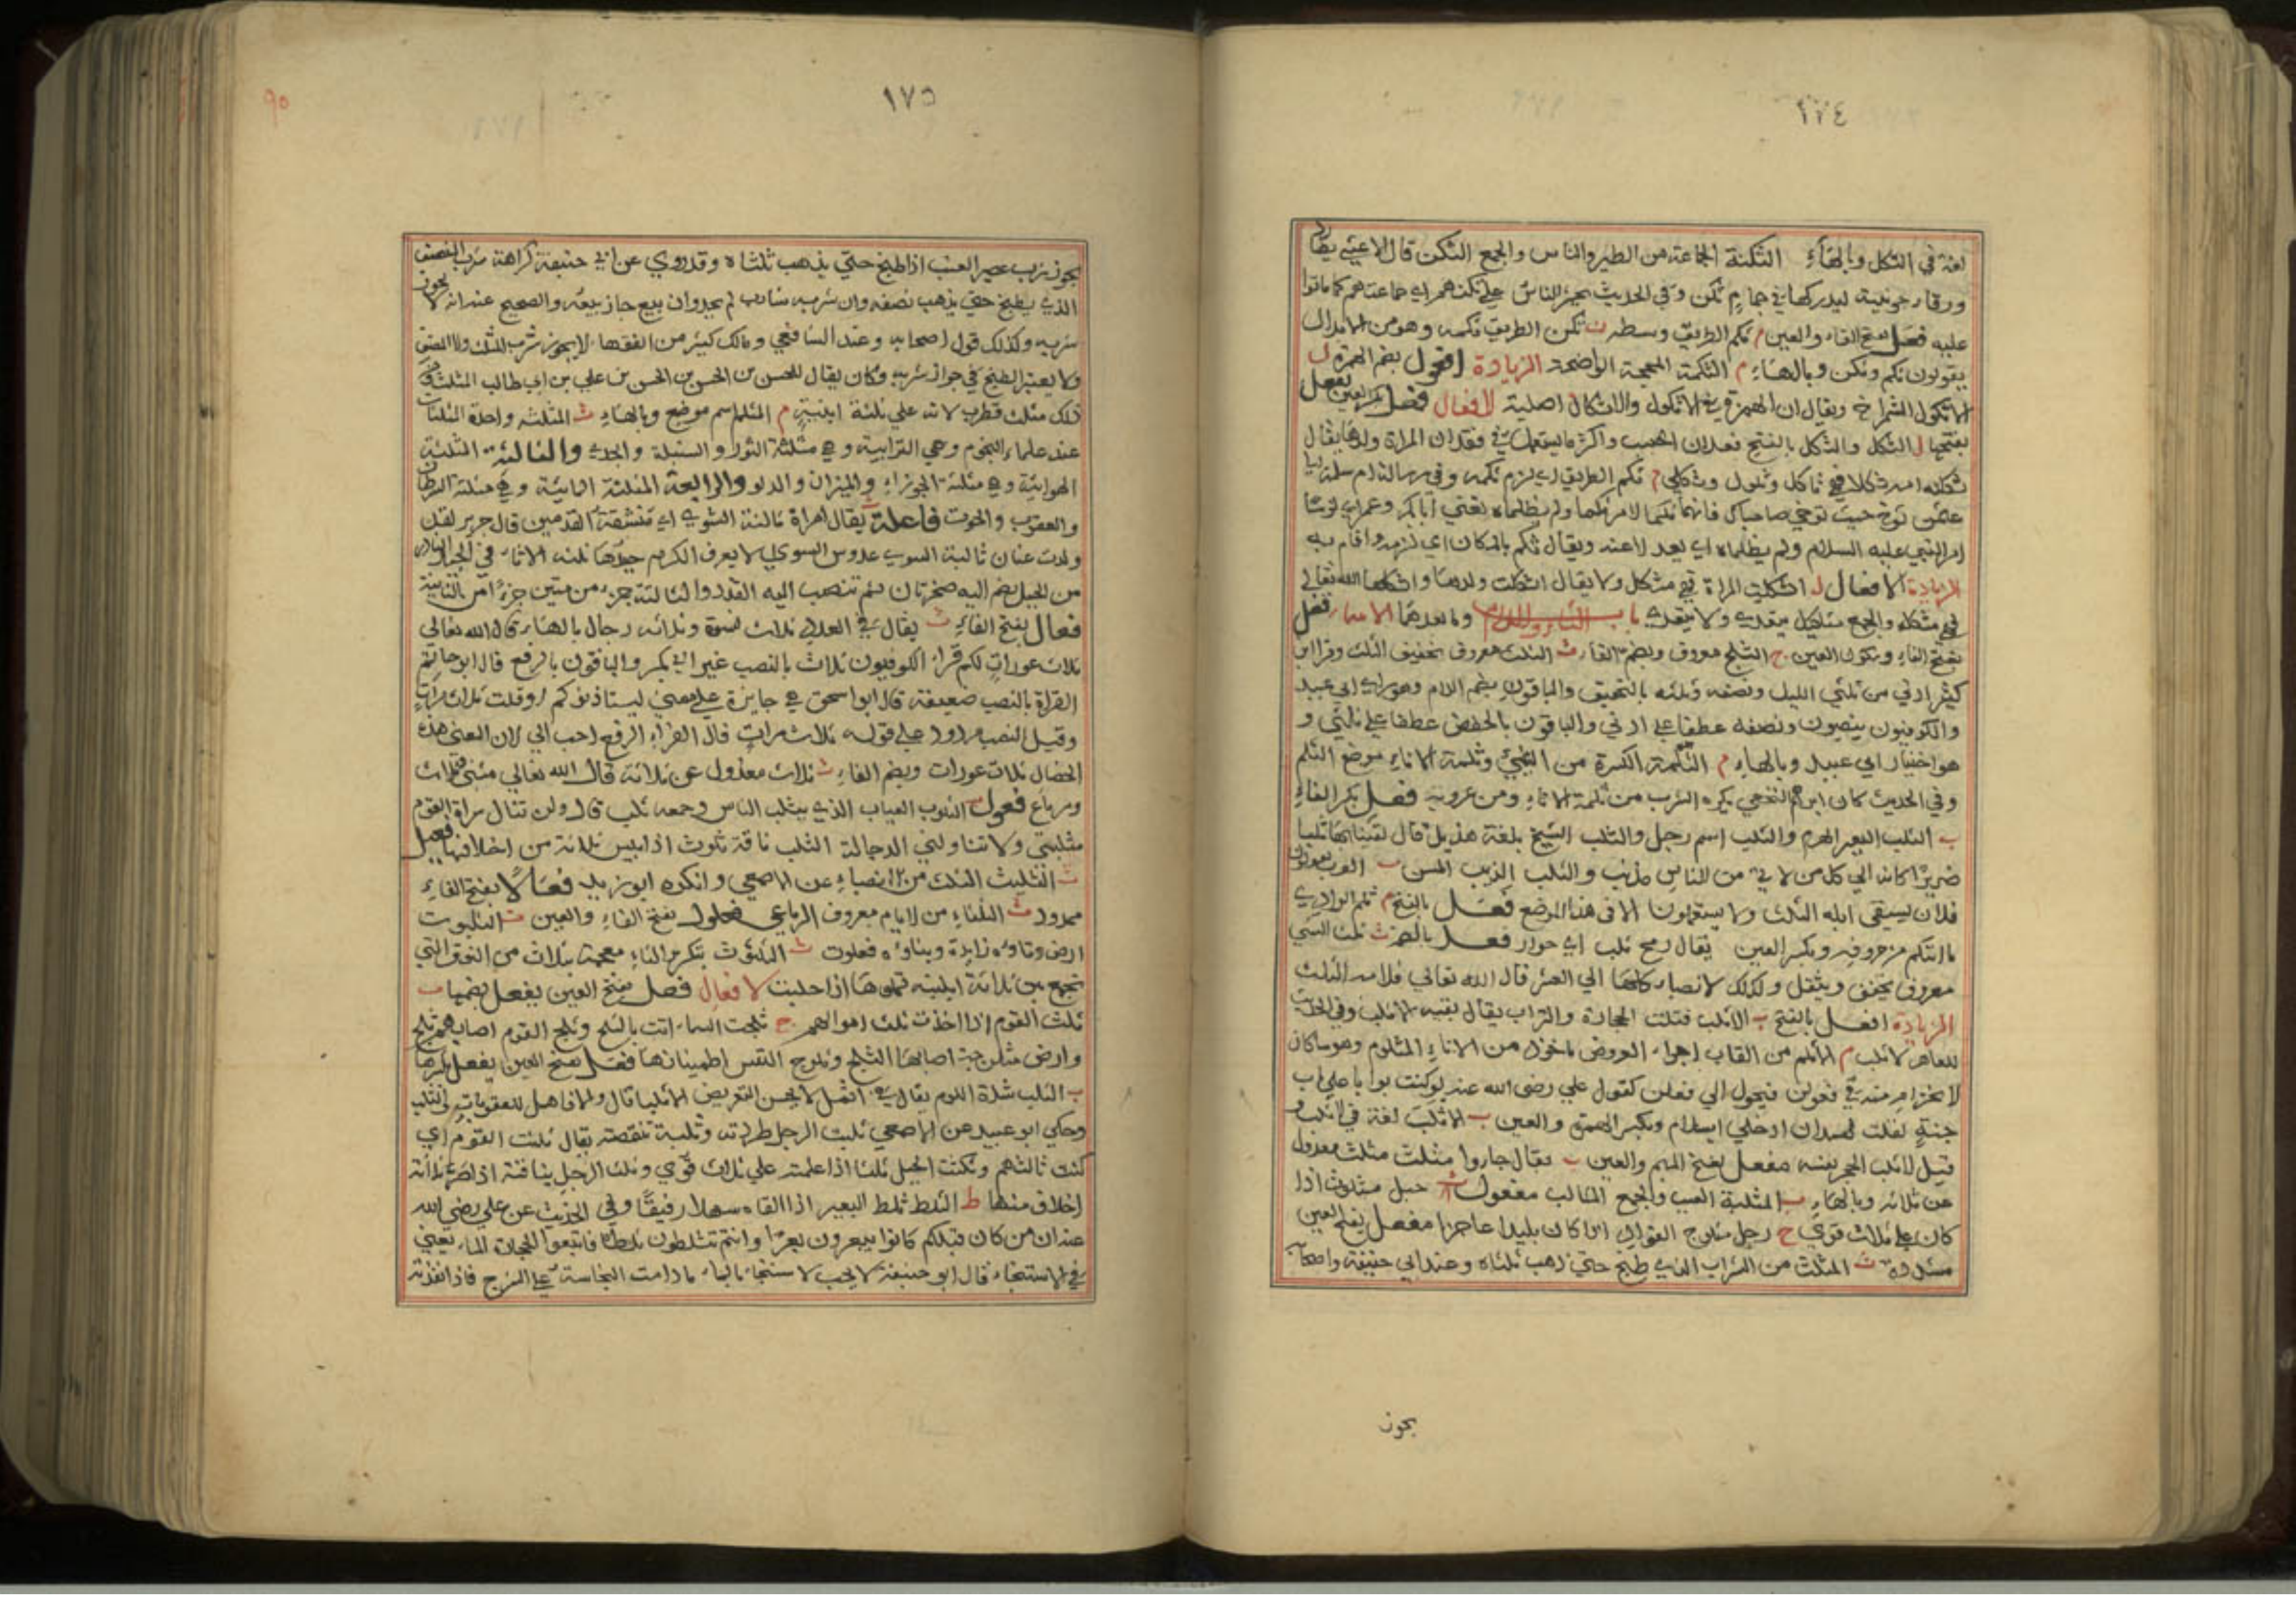 ١٧٤
لغة في الثكل وبالهاء الثكنة الجماعة من الطير والناس والجمع الثكن قال الاعشى
ورقاء ليدركها في حمام ثكن وفي الحديث يحشر الناس على ثكنهم اي جماعتهم كما ماتوا
عليه فعل بفتح الفاء والعين م ثكم الطريق وسطه ن ثكن الطريق ثكمه وهو من الابدال
يقولون ثكم وثكن وبالهاء م الثكمة المحجة الواضحة الزيادة افعول بضم الهمزة ل
الاثكول الشمراخ ويقال ان الهمزة في الاثكول والاثكال اصلية الافعال فعل بكسر العين يفعل
بفتحها ل الثكل والثكل بالفتح فقدان الحبيب واكثر ما يستعمل في فقدان المراة ولدها يقال
ثكلته امه ثكلا فهي ثاكل وثكول وثكلى م ثكم الطريق اي لزم ثكمه وفي رسالة ام سلمة الى
عثمن توخ حيث توخى صاحباك فانهما ثكما الامر ثكما ولم يظلماه تعني ابا بكر وعمر اي لزما
امر النبي عليه السلام ولم يظلماه اي يعدلا عنه ويقال ثكم بالمكان اي لزمه واقام به
الزيادة الافعال ل اثكلت المراة فهي مثكل ولا يقال اثكلت ولدها واثكلها الله تعالى
فهي مثكلة والجمع مثاكيل يتعدى ولا يتعدى باب الثاء واللام وما بعدهما الاسماء فعل
بفتح الفاء وسكون العين ج الثلج معروف وبضم الفاء ث الثلث معروف تخفيف الثلث وقرا ابن
كثير ادنى من ثلثي الليل ونصفه وثلثه بالتخفيف والباقون بضم اللام وهو راي ابي عبيد
والكوفيون ينصبون ونصفه عطفا على ادنى والباقون بالخفض عطفا على ثلثي و
هو اختيار ابي عبيد وبالهاء م الثلمة الكسرة من الشيء وثلمة الاناء موضع الثلم
وفي الحديث كان ابراهيم النخعي يكره الشرب من ثلمة الاناء ومن عروته فعل بكسر الفاء
ب الثلب البعير الهرم والثلب اسم رجل والثلب الشيخ بلغة هذيل قال
ضريرا كانه الى كل من لاقى من الناس مذنب والثلب الذيب المسن ث العرب يقولون
فلان يسقي ابله الثلث ولا يستعملونه الا في هذا الموضع فعل بالفتح م ثلم الوادي
ما انثلم من حروفه وبكسر العين يقال رمح ثلب اي خوار فعل بالضم ث ثلث الشيء
معروف يخفف ويثقل وكذلك الانصباء كلها الى العشر قال الله تعالى فلامه الثلث
الزيادة افعل بالفتح ب الاثلب فتات الحجارة والتراب يقال بفيه الاثلب وفي الحديث
للعاهر الاثلب م الاثلم من القاب اجزاء العروض ماخوذ من الاناء المثلوم وهو ما كان
الانخرام منه في فعولن فيحول الى فعلن كقول علي رضي الله عنه لو كنت بوابا على باب
جنة لقلت لهمدان ادخلي بسلام وبكسر الهمزة والعين ب الاثلب لغة في الاثلب و
قيل الاثلب الحجر بعينه مفعل بفتح الميم والعين ث يقال جاروا مثلث مثلث معدول
عن ثلاثة وبالهاء ب المثلبة العيب والجمع المثالب مفعول ث حبل مثلوث اذا
كان على ثلاث قوى ج رجل مثلوج الفواد اذا كان بليدا عاجزا مفعل بفتح العين
مشددة ث المثلث من الشراب الذي طبخ حتى ذهب ثلثاه وعند ابي حنيفة واصحابه
يجوز
١٧٥
٩٥
يجوز شرب عصير العنب اذا طبخ حتى يذهب ثلثاه وقد روي عن ابي حنيفة كراهة شرب المنصف
الذي يطبخ حتى يذهب نصفه وان شربه شارب لم يحد وان بيع جاز بيعه والصحيح عنده انه لا يجوز
شربه وكذلك قول اصحابه وعند الشافعي ومالك كثير من الفقهاء لا يجوز شرب المثلث ولا المنصف
ولا يعتبر الطبخ في جواز شربه وكان يقال للحسن بن الحسن بن الحسن بن علي بن ابي طالب المثلث
مثلث قطرب لانه على ثلثة ابنية م المثلم اسم موضع وبالهاء ث المثلثة واحدة المثلثات
عند علماء النجوم وهي الترابية وهي مثلثة الثور والسنبلة والجدي والثالثة المثلثة
الهوائية وهي مثلثة الجوزاء والميزان والدلو والرابعة المثلثة المائية وهي مثلثة السرطان
والعقرب والحوت فاعلة يقال امراة ثالبة الشوى اي متشققة القدمين قال جرير لقد
ولدت غسان ثالبة الشوى عدوس السرى لا يعرف الكرم جيدها ثلثه الاثافي الحيد النادر
من الجبل يضم اليه صخرتان ثم تنصب اليه القدر والثالثة جزء من ستين جزءا من الثانية
فعال بفتح الفاء ث يقال في العدد ثلاث نسوة وثلاثة رجال بالهاء قال الله تعالى
ثلاث عورات لكم قراءة الكوفيون ثلاث بالنصب غير ابي بكر والباقون بالرفع قال ابو حاتم
القراءة بالنصب ضعيفة قال ابو اسحق هي جايزة على معنى ليستاذنوكم اوقات ثلاث مرات
وقيل النصب على قوله ثلاث مرات قال الفراء الرفع احب الي لان المعنى هذه
الخصال ثلاث عورات وبضم الفاء ث ثلاث معدول عن ثلاثة قال الله تعالى مثنى وثلاث
ورباع فعول ب الثلوب العياب الذي يثلب الناس وجمعه ثلب قال ولن تنال سراة القوم
مثلبتي ولا تناولني ناقة ثلوث اذا يبس ثلاثة من اخلافها فعيل
ث الثليث الثلث من الانصباء عن الاصمعي وانكره ابو زيد فعالا بفتح الفاء
ممدود ث الثلثاء من الايام معروف الرباعي فعلول بفتح الفاء والعين ث الثلبوت
ارض وتاؤه زايدة وبناؤه فعلوت ث الثلثوث بتكرير الثاء معجمة بثلاث من النوق التي
تجمع بين ثلاثة انية تملؤها اذا حلبت الافعال فعل بفتح العين يفعل بضمها ث
ثلث القوم اذا اخذت ثلث اموالهم ج ثلجت السماء اتت بالثلج وثلج القوم اصابهم ثلج
وارض مثلوجة اصابها الثلج وثلوج النفس اطمينانها فعل بفتح العين يفعل بكسرها
ب الثلب شدة اللوم يقال في المثل لا يحسن التعريض الا ثلبا قال
وحكى ابو عبيد عن الاصمعي ثلبت الرجل طردته وثلبه تنقصه يقال ثلثت القوم اي
كنت ثالثهم وثلثت الحبل ثلثا اذا عملته على ثلاث قوى وثلث الرجل بناقته اذا صر ثلاثة
اخلاف منها ط الثلط ثلط البعير اذا القاه سهلا رقيقا وفي الحديث عن علي رضي الله
عنه ان من كان قبلكم كانوا يبعرون بعرا وانتم تثلطون ثلطا فاتبعوا الحجارة الماء يعني
في الاستنجاء قال ابو حنيفة لا يجب الاستنجاء بالماء ما دامت النجاسة على الشرج فاذا تعدته